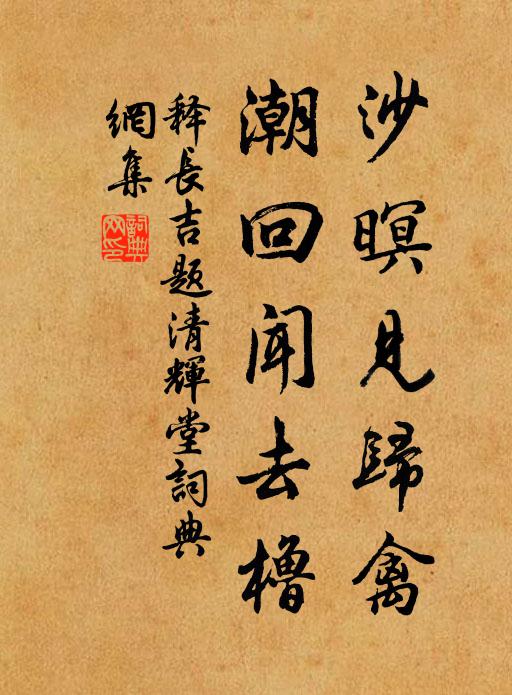 沙暝見歸禽
潮回闻去櫓
释長吉題清輝堂詞典
網集
詞典
网印